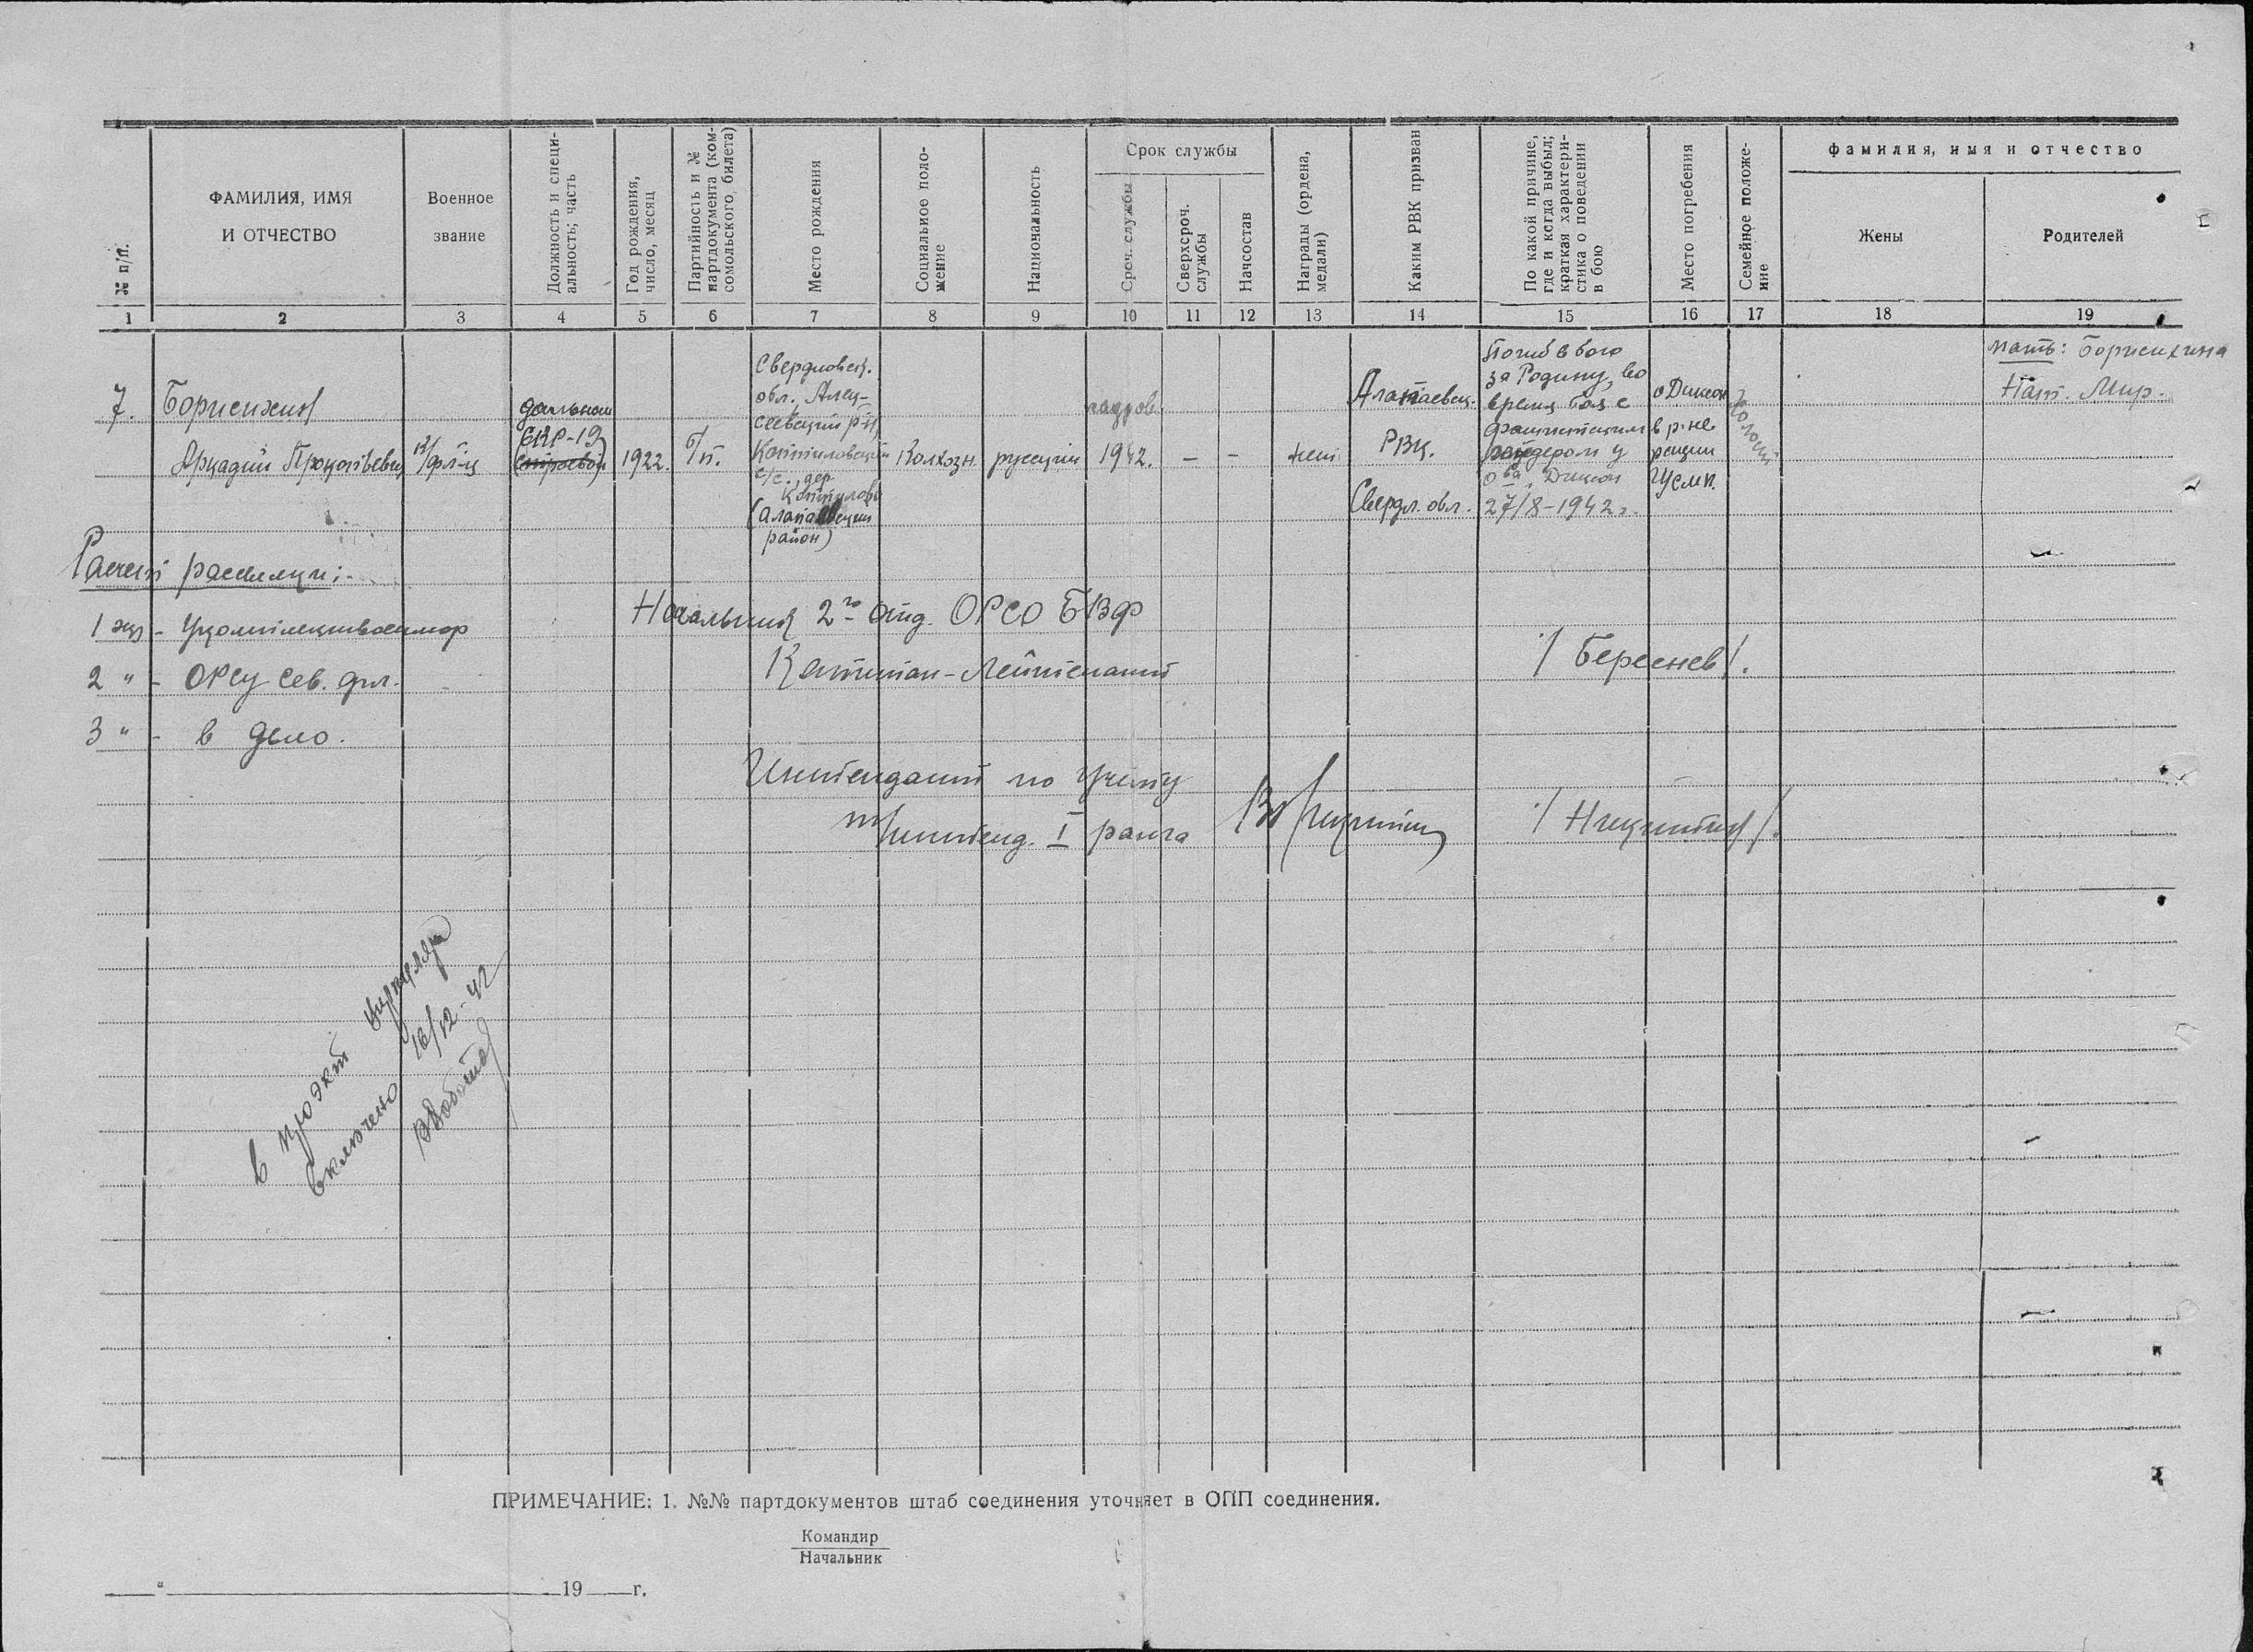 № п/п.
ФАМИЛИЯ, ИМЯ
И ОТЧЕСТВО
Военное
звание
Должность и специ-
альность; часть
Год рождения,
число, месяц
Партийность и №
партдокумента (ком-
сомольского билета)
Место рождения
Социальное поло-
жение
Национальность
Срок службы
Сроч. службы
Сверхсроч.
службы
Начсостав
Награды (ордена,
медали)
Каким РВК призван
По какой причине,
где и когда выбыл;
краткая характери-
стика о поведении
в бою
Место погребения
Семейное положе-
ние
фамилия, имя и отчество
Жены
Родителей
1 2 3 4 5 6 7 8 9 10 11 12 13 14 15 16 17 18 19
7.
Борисихин
Аркадий Прокопьевич
к/фл-ц
СКР-19
(строевой)
1922.
б/п.
Свердловск.
обл. Алек-
сеевский р-н,
Коптиловский
с/с., дер.
Коптилово
(Алапаевский
район)
Колхозн.
русский
1942.
-
-
нет
Алапаевск.
РВК.
Свердл. обл.
Погиб в бою
за Родину, во
время боя с
фашистским
рейдером у
о-ва Диксон
27/8-1942 г.
о Диксон
в р-не
холост
мать: Борисихина
Нат. Мир.
Расчет рассылки:-
1 экз - Укомплектвоенмор
2 " - ОРСУ Сев. фл.
3 " - в дело.
Начальник 2го отд. ОРСО БВФ
Капитан-Лейтенант
/ Береснев /.
Интендант по учету
т/интенд. I ранга
/ Никитин /.
в проэкт циркуляра
включено 16/12-42
ПРИМЕЧАНИЕ: 1. №№ партдокументов штаб соединения уточняет в ОПП соединения.
Командир
Начальник
" 19 г.